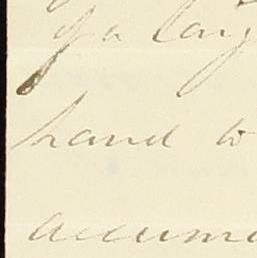 of a larg
hand to
accum